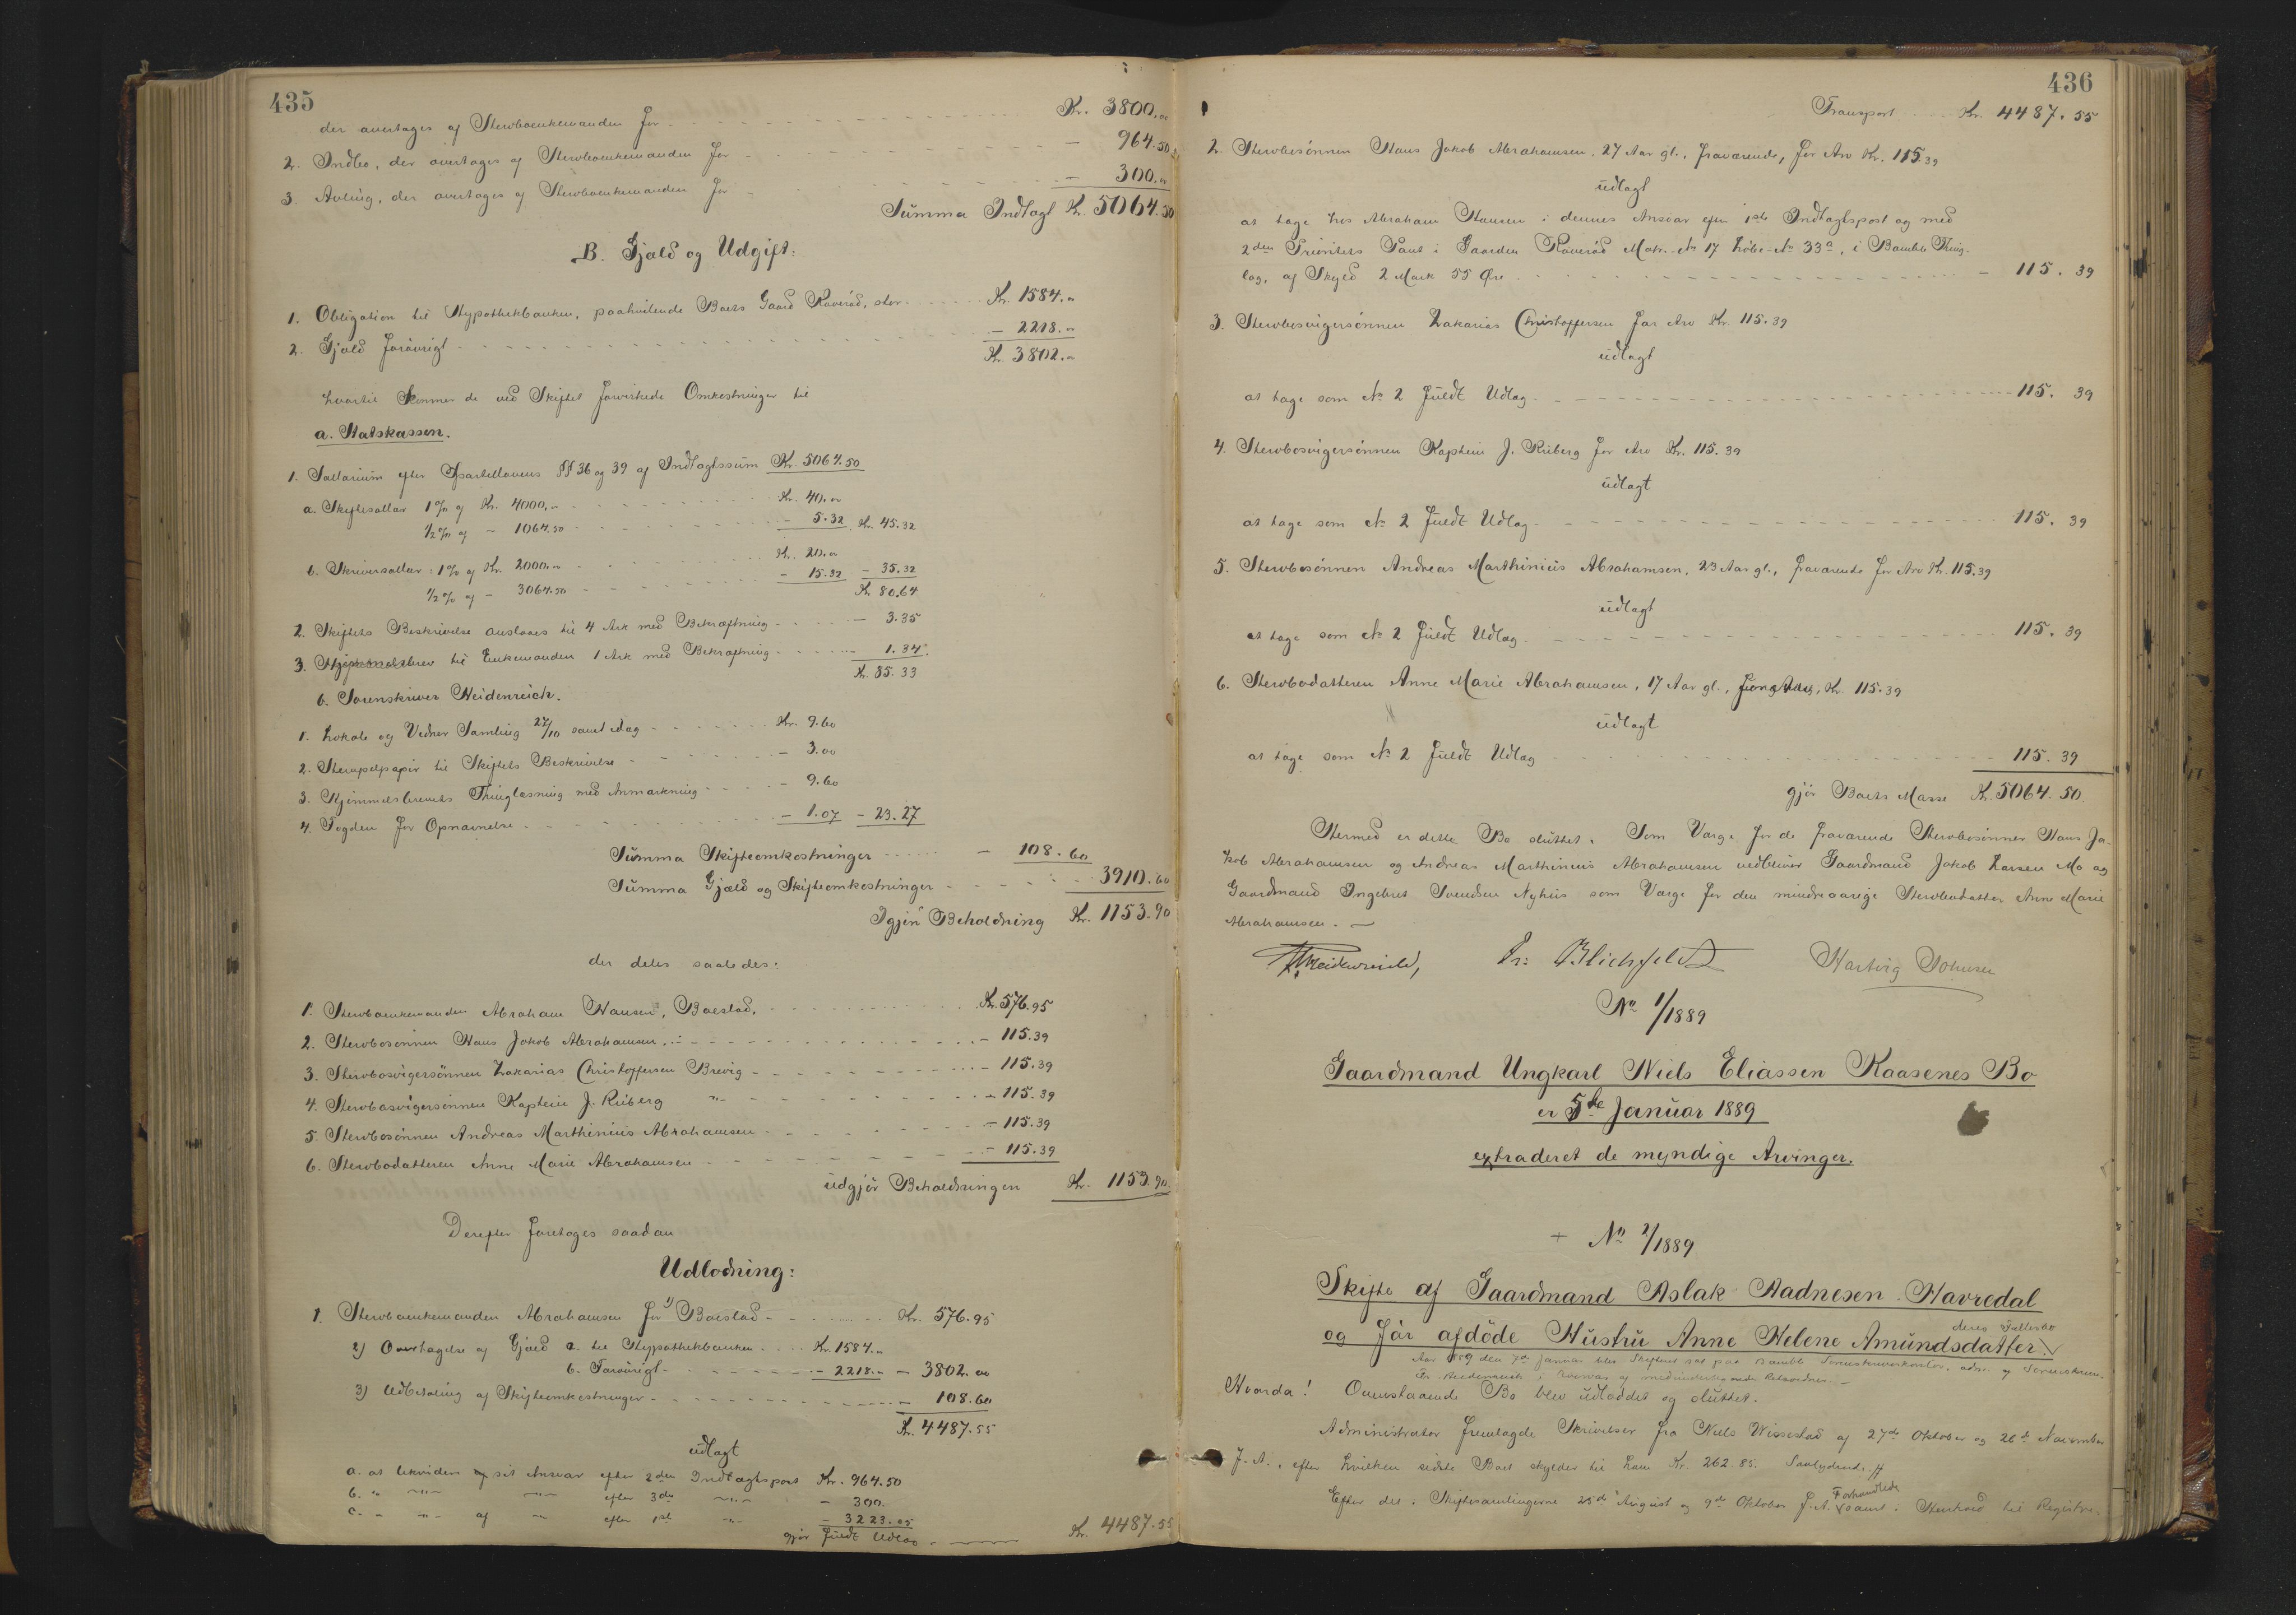 435
der overtages af Sterboenkemanden for Kr. 3800.00
2. Indbo, der overtages af Sterboenkemanden for - 964.50
3. Avling, der overtages af Sterboenkemanden for - 300.00
Summa Indtægt Kr. 5064.50
B. Gjæld og Udgift:
1. Obligation til Hypothekbanken, paahvilende Boets Gaard Rønerød, stor Kr. 1584.00
2. Gjæld forøvrigt - 2218.00
Kr. 3802.00
hvortil kommer de ved Skiftet forvirkede Omkostninger til
a. Statskassen.
1. Sallarium efter Sportellovens §§ 36 og 39 af Indtægtssum Kr. 5064.50
a. Skiftesallar 1% af Kr. 4000.- Kr. 40.00
1/2% af - 1064.50 - 5.32 Kr. 45.32
b. Skriversallar: 1% af Kr. 2000.00 Kr. 20.00
1/2% af - 3064.50 - 15.32 - 35.32
Kr. 80.64
2. Skiftets Beskrivelse anslaaes til 4 Ark med Bekræftning - 3.35
3. Hjemmelsbrev til Enkemanden 1 Ark med Bekræftning - 1.34
Kr. 85.33
b. Sorenskriver Heidenreich.
1. Lokale og Vidner Samling 27/10 samt idag Kr. 9.60
2. Stempelpapir til Skiftets Beskrivelse - 3.00
3. Hjemmelsbrevets Thinglæsning med Anmærkning - 9.60
4. Fogden for Opnævnelse - 1.07 - 23.27
Summa Skifteomkostninger - 108.60
Summa Gjæld og Skifteomkostninger - 3910.60
Igjen Beholdning Kr. 1153.90
der deles saaledes:
1. Sterboenkemanden Abraham Hansen, Boeslod, Kr. 576.95
2. Sterbosønnen Hans Jakob Abrahamsen - 115.39
3. Sterbosvigersønnen Zakarias Christoffersen Brevig - 115.39
4. Sterbosvigersønnen Kaptein J. Riiberg "- - 115.39
5. Sterbosønnen Andreas Marthinius Abrahamsen - 115.39
6. Sterbodatteren Anne Marie Abrahamsen - 115.39
udgjør Beholdningen Kr. 1153.90
Derefter foretages saadan
Udlodning:
1. Sterboenkemanden Abrahamsen for 1) Boeslod Kr. 576.95
2) Overtagelse af Gjæld a. til Hypothekbanken Kr. 1584.00
b. Forøvrigt - 2218.00 - 3802.00
3) Udbetaling af Skifteomkostninger - 108.60
Kr. 4487.55
udlagt
a. at likvidere af sit Ansvar efter 2den Indtægtspost Kr. 964.50
b. " -"- -"- efter 3die -"- - 300.
c. " -"- af -"- efter 1ste -"- - 3223.05
gjør fuldt Udlæg Kr. 4487.55
436
Transport Kr. 4487.55
2. Sterbosønnen Hans Jakob Abrahamsen, 27 Aar gl., fraværende, for Arv Kr. 115.39
udlagt
at tage hos Abraham Hansen i dennes Ansvar efter 1ste Indtægtspost og med
2den Prioritets Pant i Gaarden Rønerød Matr.-No 17 Løbe-No 33a, i Bamble Thing-
lag, af Skyld 2 Mark 55 Øre - 115.39
3. Sterbosvigersønnen Zakarias Christoffersen for Arv Kr. 115.39
udlagt
at tage som No 2 fuldt Udlæg 115.39
4. Sterbosvigersønnen Kaptein J. Riiberg for Arv Kr. 115.39
udlagt
at tage som No 2 fuldt Udlæg 115.39
5. Sterbosønnen Andreas Marthinius Abrahamsen, 23 Aar gl., fraværende for Arv Kr. 115.39
udlagt
at tage som No 2 fuldt Udlæg 115.39
6. Sterbodatteren Anne Marie Abrahamsen, 17 Aar gl., Kr. 115.39
udlagt
at tage som No 2 fuldt Udlæg 115.39
gjør Boets Masse Kr. 5064.50
Hermed er dette Bo sluttet. Som Værge for de fraværende Sterbosønner Hans Ja-
kob Abrahamsen og Andreas Marthinius Abrahamsen vedbliver Gaardmand Jakob Larsen Mo og
Gaardmand Ingebret Svendsen Nyhus som Værge for den mindreaarige Sterbodatter Anne Marie
Abrahamsen. -
Heidenreich, Blichfeldt Hartvig Johnsen
No 1/1889
Gaardmand Ungkarl Niels Eliassen Kaasenes Bo
er 5te Januar 1889
extraderet de myndige Arvinger.
+ No 2/1889
Skifte af Gaardmand Aslak Aadnesen Havredal
og før afdøde Hustru Anne Helene Amundsdatter
deres Fællesbo
Aar 1889 den 7de Januar blev Skifteret sat paa Bamble Sorenskriverkontor, adm. af Sorenskriv-
Heidenreich i Overvær af medunderskrevne Retsvidner. -
Hvorda! Ovenstaaende Bo blev udloddet og sluttet.
Administrator fremlagde Skrivelser fra Niels Wissestad af 27de Oktober og 26de November
f. A., efter hvilken sidste Boet skylder til ham Kr. 262.85. Saalydende #
Efter det i Skiftesamlingerne 25de August og 9de Oktober f. A. Forhandlede samt i Henhold til Registre-